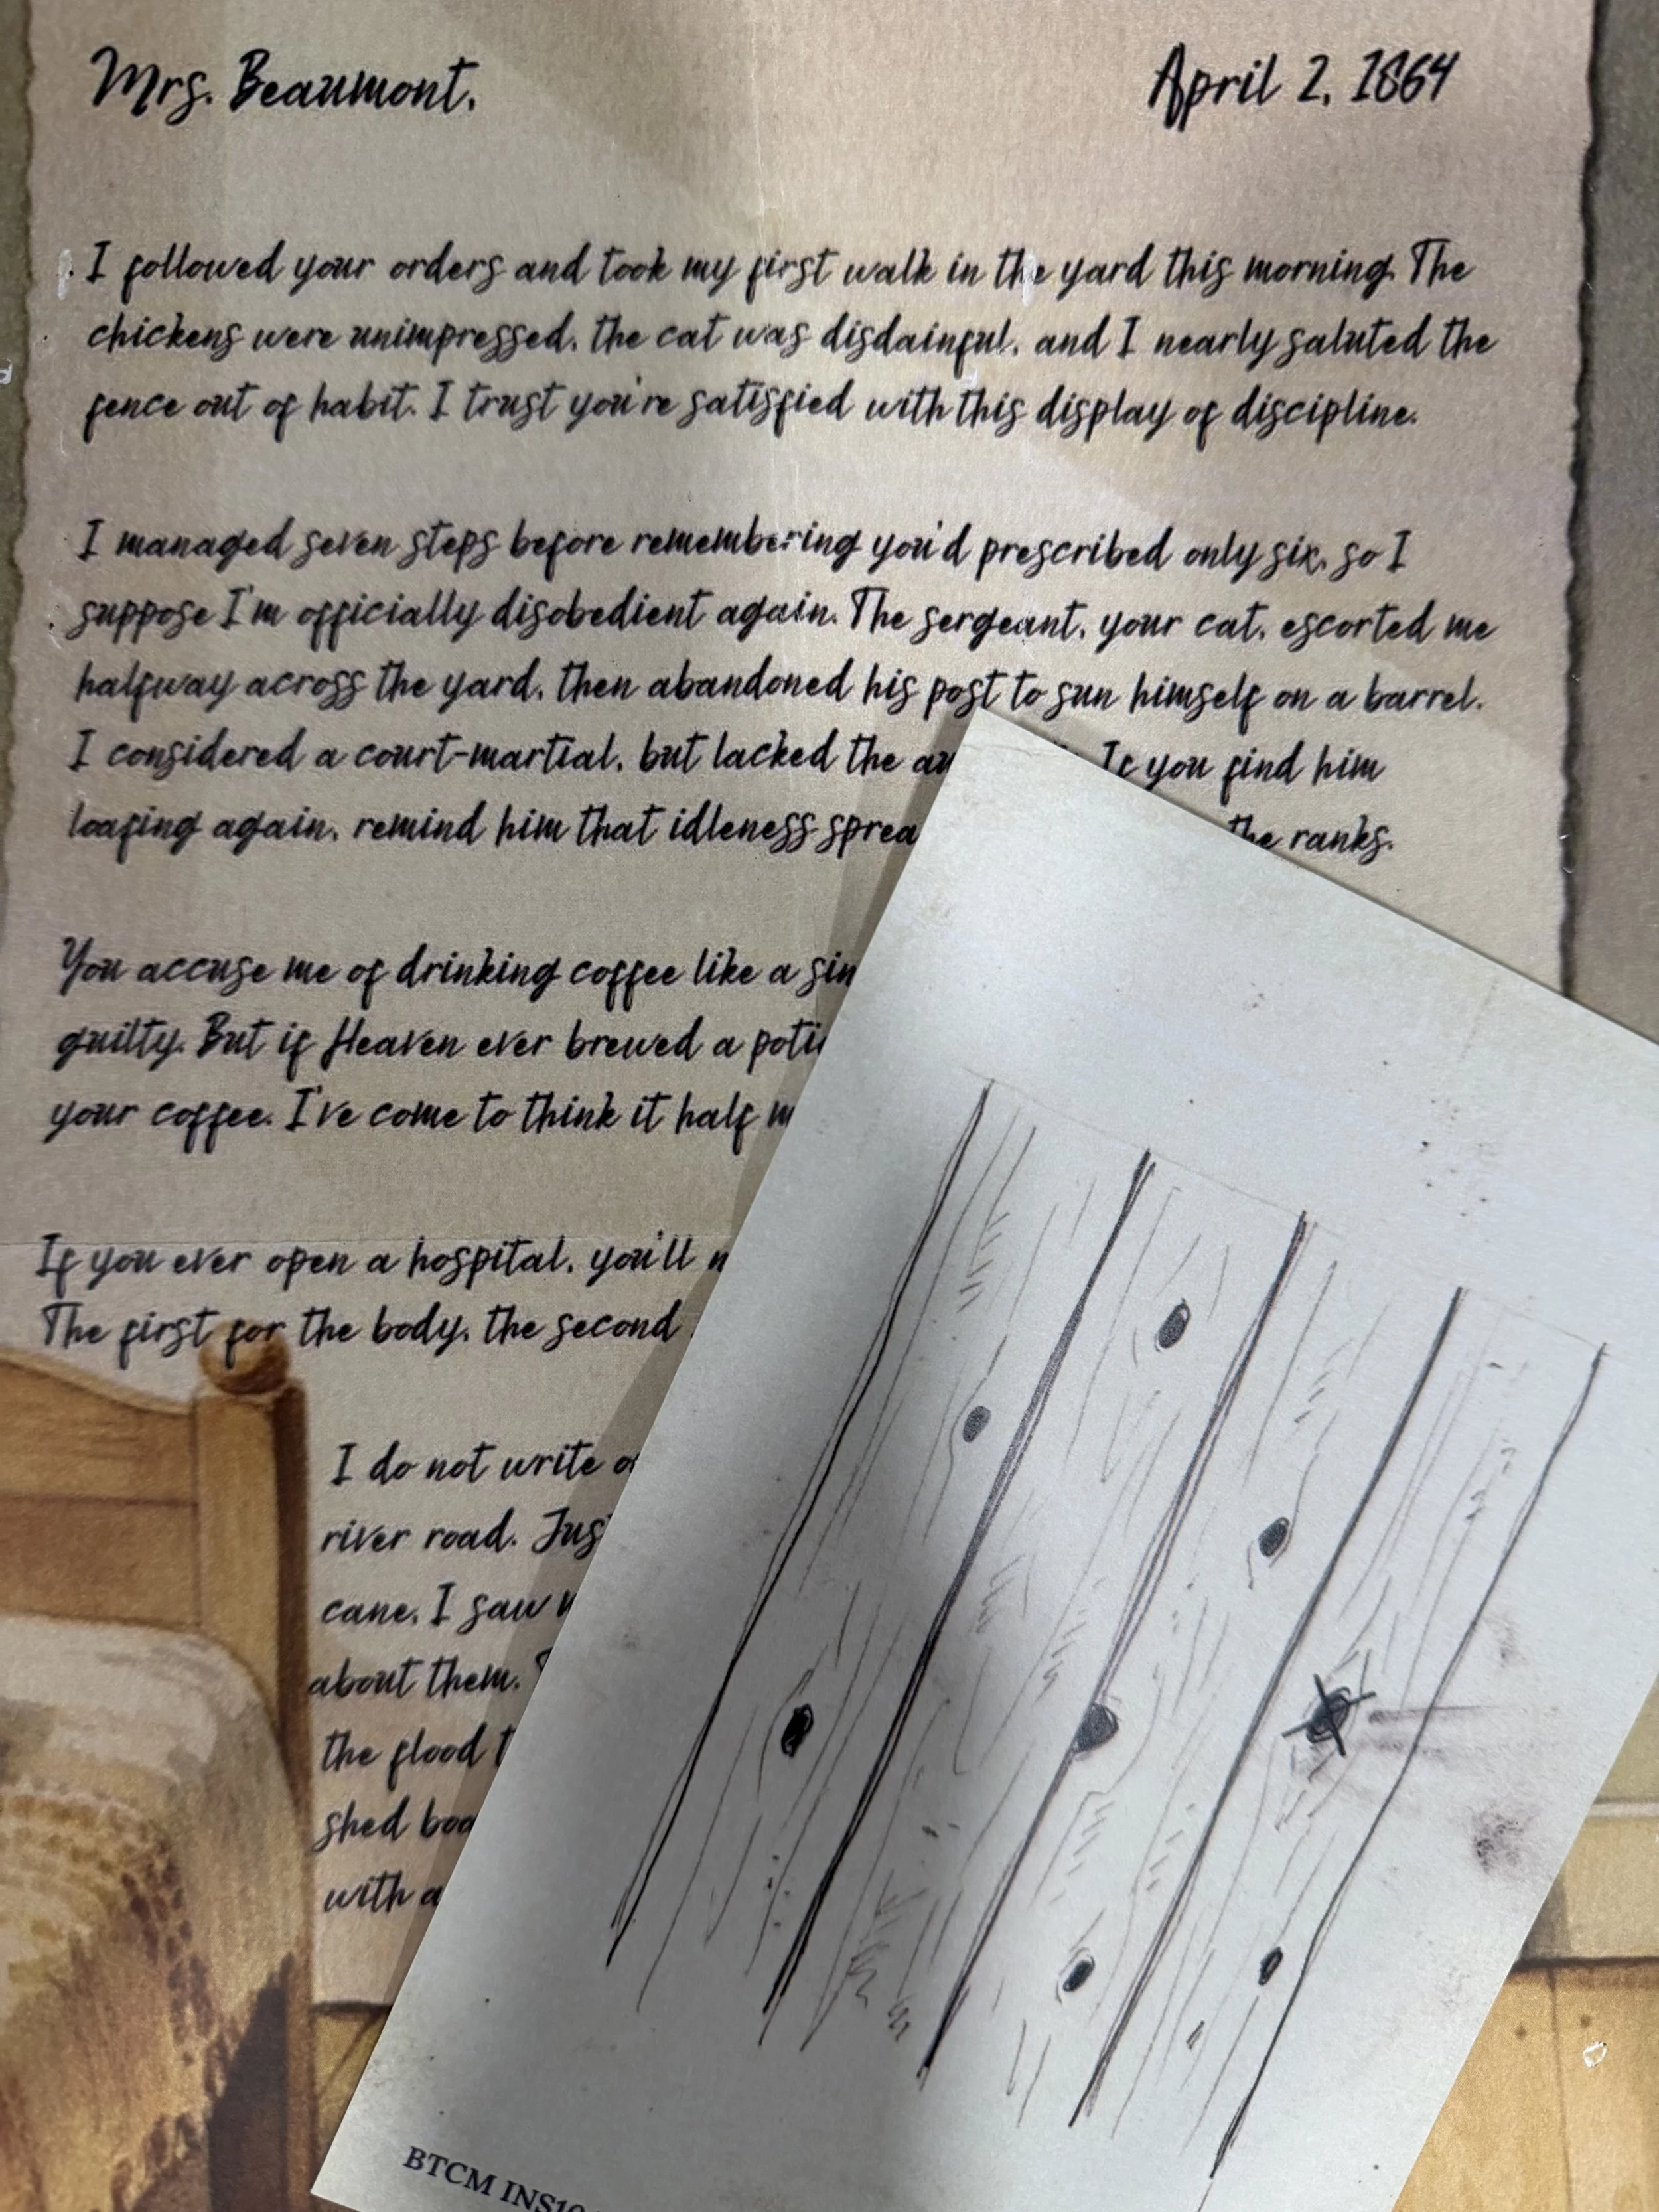 Mrs. Beaumont,
April 2, 1864
I followed your orders and took my first walk in the yard this morning. The
chickens were unimpressed, the cat was disdainful, and I nearly saluted the
fence out of habit. I trust you're satisfied with this display of discipline.
I managed seven steps before remembering you'd prescribed only six, so I
suppose I'm officially disobedient again. The sergeant, your cat, escorted me
halfway across the yard, then abandoned his post to sun himself on a barrel.
I considered a court-martial, but lacked the If you find him
loafing again, remind him that idleness the ranks.
You accuse me of drinking coffee like a
guilty. But if Heaven ever brewed a
your coffee. I've come to think it half
If you ever open a hospital, you'll
The first for the body, the second
I do not write
river road.
cane. I saw
about them.
the flood
shed
with
BTCM